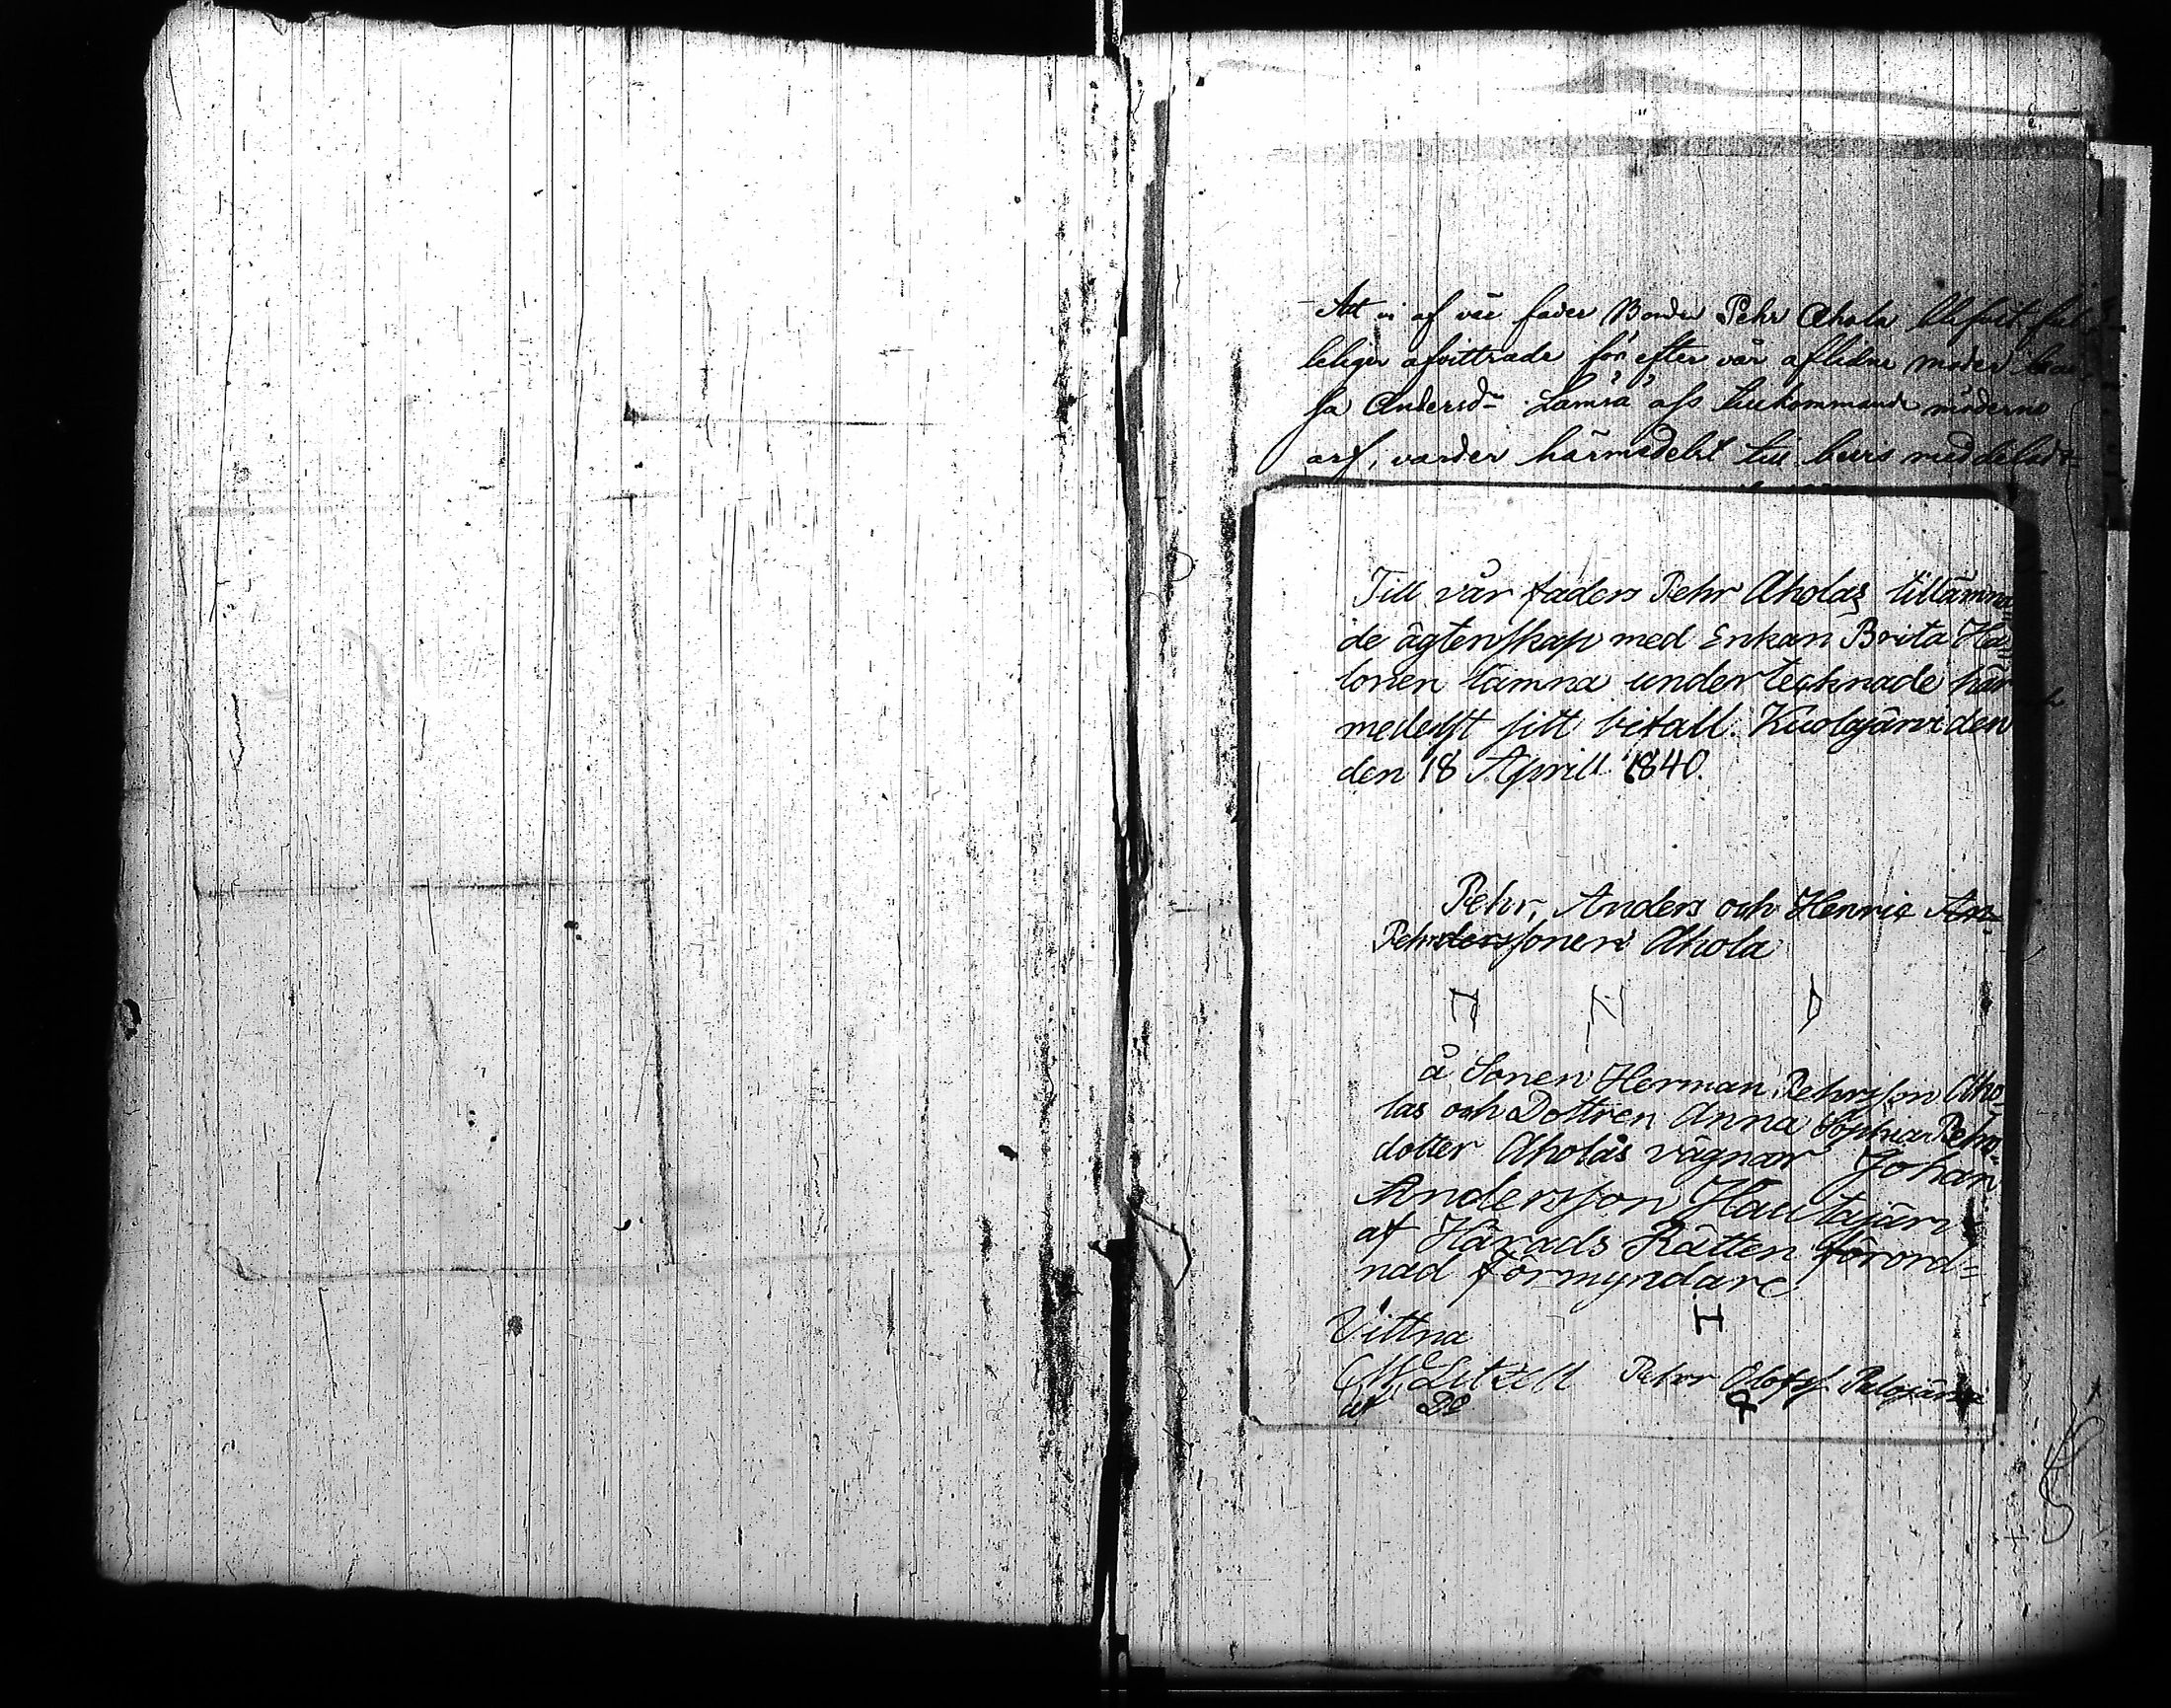 Att vi af vår fader Bonden Pehr Ahola blifvit ful
leligen afvittrade för efter vår aflidne moder
sa Andersdr Lamsa oss tillkommande möderne
arf, varder härmedelst till bevis meddeladt
Till vår faders Pehr Aholas tillämna
de ägtenskap med Enkan Brita Ha
lonen lämna undertecknade här
medelst sitt bifall. Kuolajärvi den
den 18 Aprill 1840.
Pehr, Anders och Henric An-
Pehrderssoner Ahola
å Sonen Herman Pehrsson Aho
las och Dottren Anna Sophia Pehrs
dotter Aholas vägnar Johan
Andersson Hautajärvi
af Härads Rätten förord=
nad förmyndare
Vittna
Pehr Olofss.